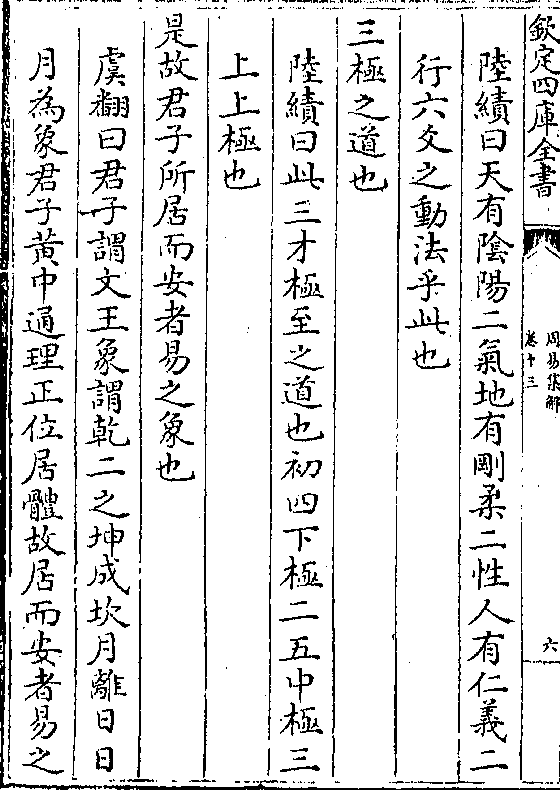 欽定四庫全書
周易集解
卷十三
六
陸績曰天有陰陽二氣地有剛柔二性人有仁義二
行六爻之動法乎此也
三極之道也
陸績曰此三才極至之道也初四下極二五中極三
上上極也
是故君子所居而安者易之象也
虞翻曰君子謂文王象謂乾二之坤成坎月離日日
月為象君子黃中通理正位居體故居而安者易之